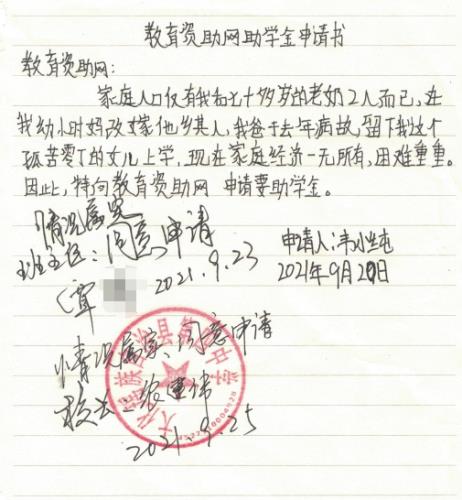 教育资助网助学金申请书
教育资助网:
家庭人口仅有我和七十多岁的老奶2人而已,在
我幼小时妈改嫁他乡其人,我爸于去年病故,留下我这个
孤苦零丁的女儿上学,现在家庭经济一无所有,困难重重。
因此,特向教育资助网 申请要助学金。
情况属实
班主任:同意申请
申请人:韦小
覃 2021.9.23
2021年9月20日
情况属实、同意申请
校长:农建伟
2021.9.25